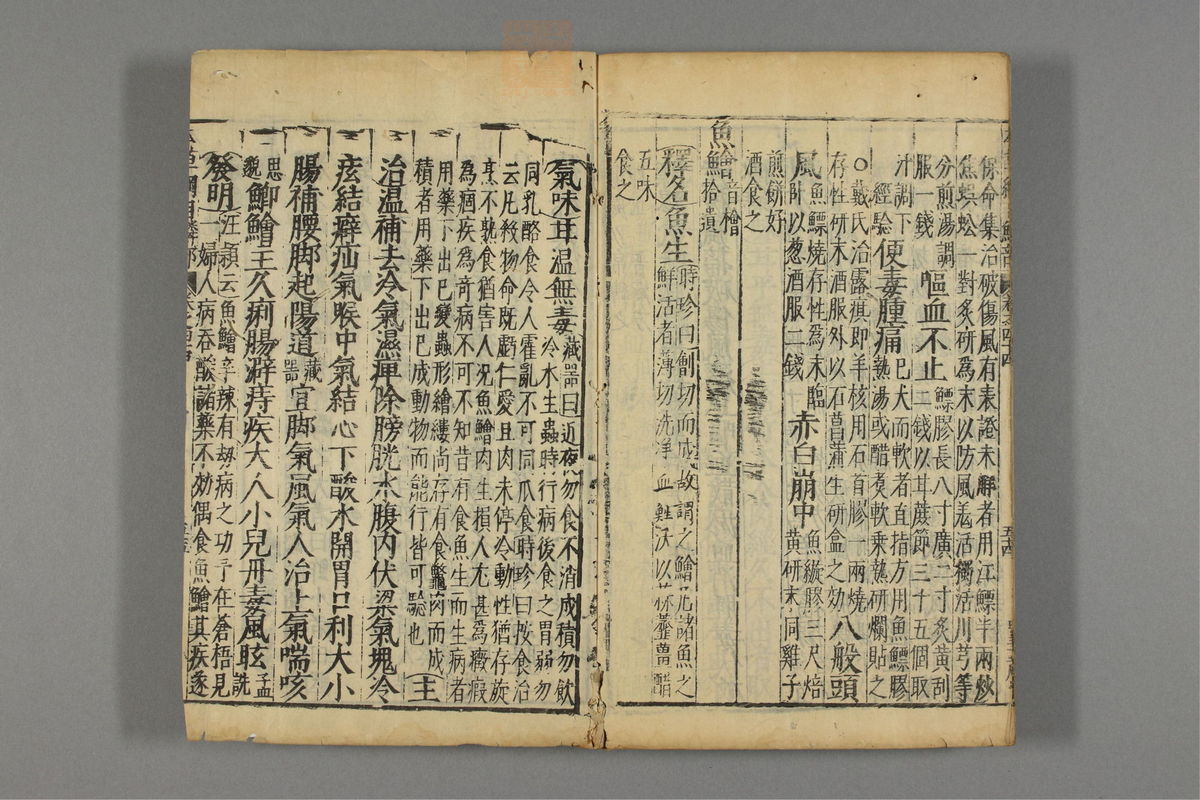 保命集治破傷風有表證未解者用江鰾半兩炒
焦蜈蚣一對炙研為末以防風羗活獨活川芎等
分煎湯調
服一錢嘔血不止鰾膠長八寸廣二寸炙黃刮
二錢以甘蔗節三十五個取
汁調下
經驗便毒腫痛巳大而軟者直指方用魚鰾膠
熱湯或醋煑軟乘熱研爛貼之
○戴氏治露瘨即羊核用石首膠一兩燒
存性研末酒服外以石菖蒲生研盒之効八般頭
風魚鰾燒存性為末臨
卧以葱酒服二錢赤白崩中魚鰾膠三尺焙
黃研末同雞子
煎餅好
酒食之
魚鱠音檜
拾遺
釋名魚生時珍曰劊切而成故謂之鱠凡諸魚之
鮮活者薄切洗淨血鮏沃以蒜虀薑醋
五味
食之
氣味甘溫無毒藏器曰近夜勿食不消成積勿飲
冷水生蟲時行病後食之胃弱勿
同乳酪食令人霍亂不可同瓜食時珍曰按食治
云凡殺物命既虧仁愛且肉未停冷動性猶存旋
烹不熟食猶害人况魚鱠肉生損人尤甚為癥瘕
為痼疾為竒病不可不知昔有食魚生而生病者
用藥下出巳變蟲形鱠縷尚存有食鼈肉而成
積者用藥下出巳成動物而能行皆可驗也主
治温補去冷氣濕痺除膀胱水腹内伏梁氣塊冷
痃結癖疝氣喉中氣結心下酸水開胃口利大小
腸補腰脚起陽道藏
器宜脚氣風氣人治上氣喘咳
思
邈鯽鱠主久痢腸澼痔疾大人小兒丹毒風眩孟
詵
發明汪頴云魚鱠辛辣有刼病之功予在蒼梧見
一婦人病吞酸諸藥不効偶食魚鱠其疾遂